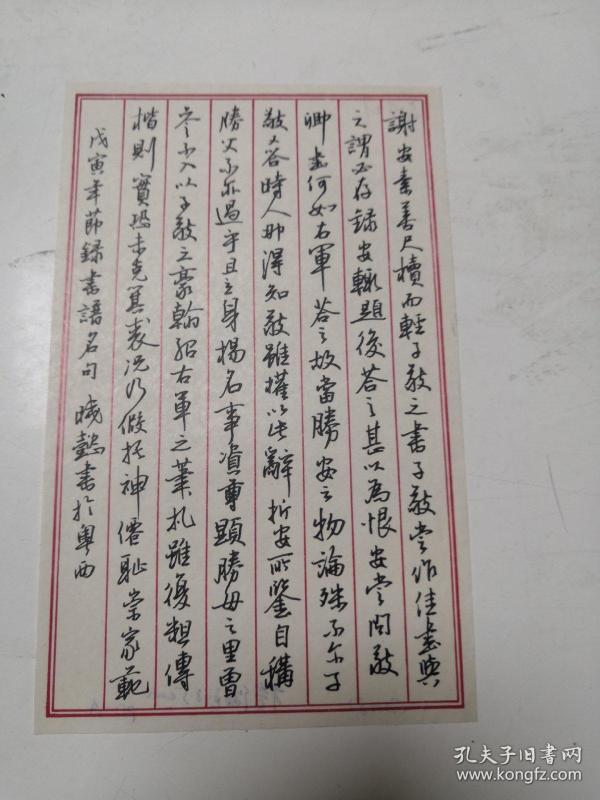 謝安素善尺牘而輕子敬之書子敬嘗作佳書與
之謂必存録安輒題後答之甚以為恨安嘗問敬
卿書何如右軍答之故當勝安云物論殊不尒子
敬又答時人那得知敬雖權以此辭折安所鑒自稱
勝父不亦過乎且立身揚名事資尊顯勝母之里曾
參不入以子敬之豪翰紹右軍之筆札雖復粗傳
楷則實恐未克箕裘況乃假托神僊恥崇家範
戊寅年節録書譜名句 曉懿書於粵西
孔夫子旧书网
www.kongfz.com